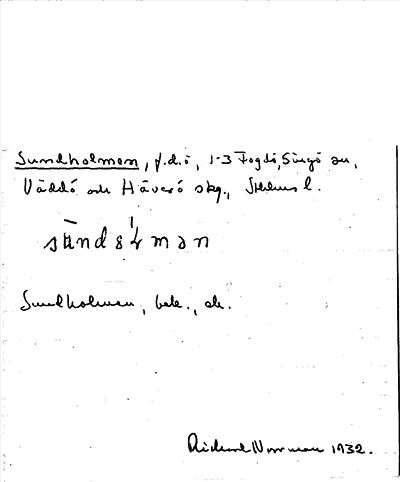 Sundholmen, f.d.ö, 1-3 Fogdö, Singö sn,
Väddö och Häverö skg., Sthlms l.
sūndɛlmən
Sundholmen, bek., ok.
Richard Norrman 1932.